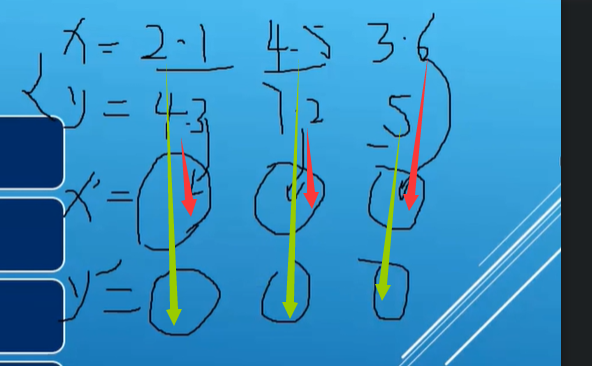 x = 2.1 4.5 3.6
y = 4.3 7.2 5
x' =
y' =